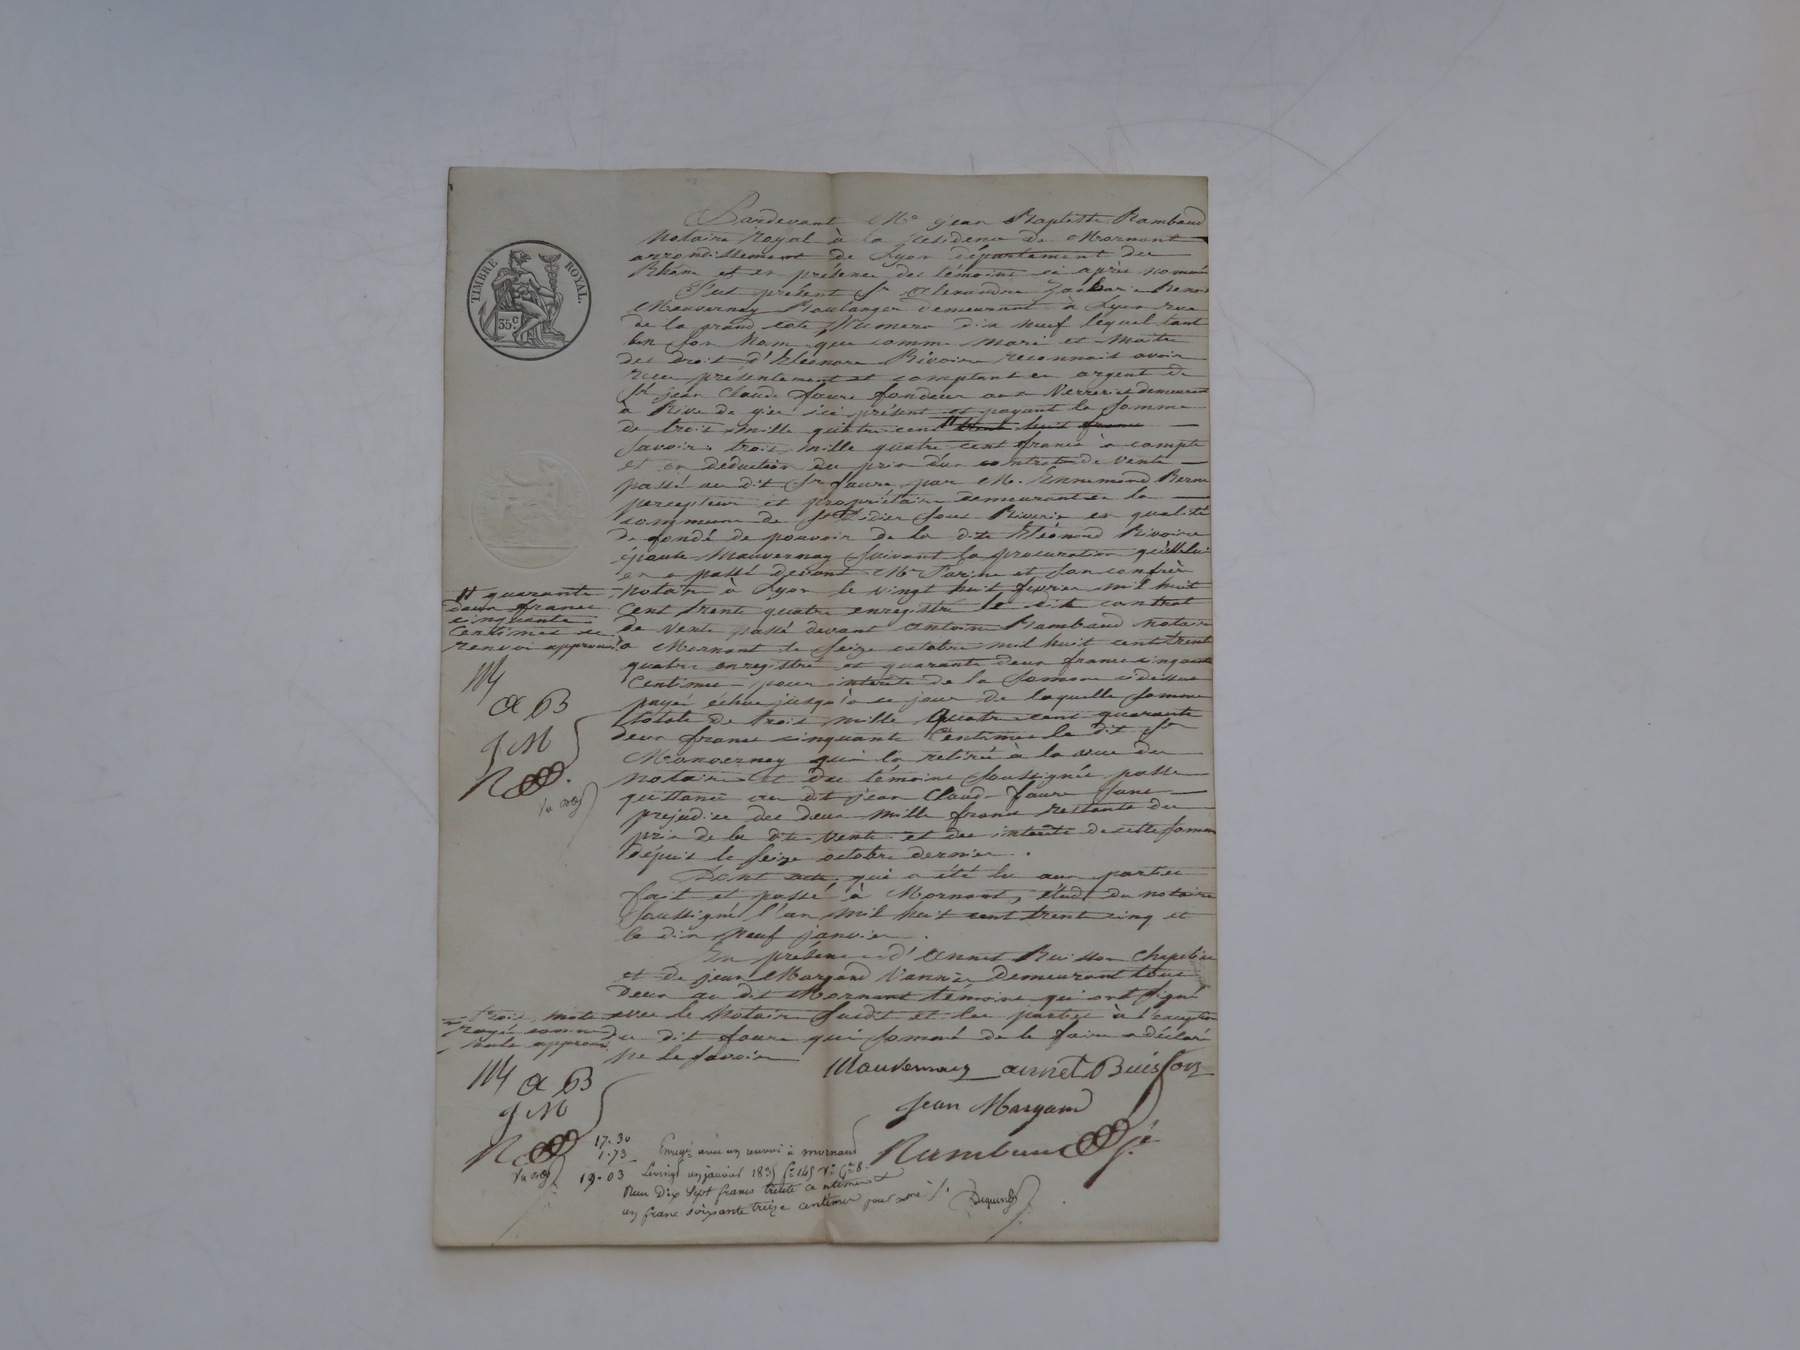 TIMBRE ROYAL.
35c
Pardevant Me jean Baptiste Rambaud
Notaire Royal à la residence de Mornant
arrondissement de Lyon département du
Rhône et en présence des témoins ci après nommés
fut présent Sr Alexandre Zacharie
Mauvernay Boulanger demeurant à Lyon rue
de la grand cote Numero dix neuf lequel tant
en son Nom que comme mari et maitre
des droit d'Eléonore Rivoire reconnait avoir
reçu présentement et comptant en argent de
Sr jean Claude faure fondeur aux Verrerie demeurant
à Rive de gier ici présent et payant la somme
de trois mille quatre cent # trente huit francs
Savoir: trois mille quatre cent francs à compte
et en déduction du prix d'un contrat de vente
passé au dit Sr faure par M. Ennemond
percepteur et propriétaire demeurant en la
commune de St Didier sous Riverie en qualité
de fondé de pouvoir de la dite Eléonord Rivoire
épouse Mauvernay suivant la procuration qu'elle lui
en a passé devant Me et son confrère
notaire à Lyon le vingt huit fevrier mil huit
cent trente quatre enregistré le dit contrat
de vente passé devant antoine Rambaud notaire
à Mornant le seize octobre mil huit cent trente
quatre enregistré et quarante deux francs cinquante
Centimes pour interets de la somme ci dessus
payée échue jusqu'à ce jour de laquelle somme
totale de trois mille Quatre cent quarante
deux francs cinquante Centimes le dit Sr
Mauvernay qui la retirée à la vue du
notaire et des témoins soussignés passe
quittance au dit jean Claude faure sans
prejudice des deux mille francs restants du
prix de la dite vente et des interets de cette somme
dépuis le seize octobre dernier.
Dont acte, qui a été lu aux parties
fait et passé à Mornant, étude du notaire
soussigné l'an mil huit cent trente cinq et
le dix neuf janvier.
En présence d'annet Buisson Chapelier
et de jean Margand Vannier demeurant tous
deux au dit Mornant témoins qui ont signé
avec le Notaire susdit et les parties à l'exception
du dit faure qui sommé de le faire a déclaré
ne le savoir
# quarante
deux francs
cinquante
Centimes ce
renvoi approuvé
M
a B
J M
R
trois mots
rayés comme
nuls approuvé
M a B
J M
R
Mauvernay annet Buisson
Jean Margand
Rambaud
17.30
1.73
19.03
Enregé avec un renvoi à mornant
Le vingt un janvier 1835 fo 145 Vo Ce 8.
Reçu Dix Sept francs trente centimes et
un franc soixante treize centimes pour